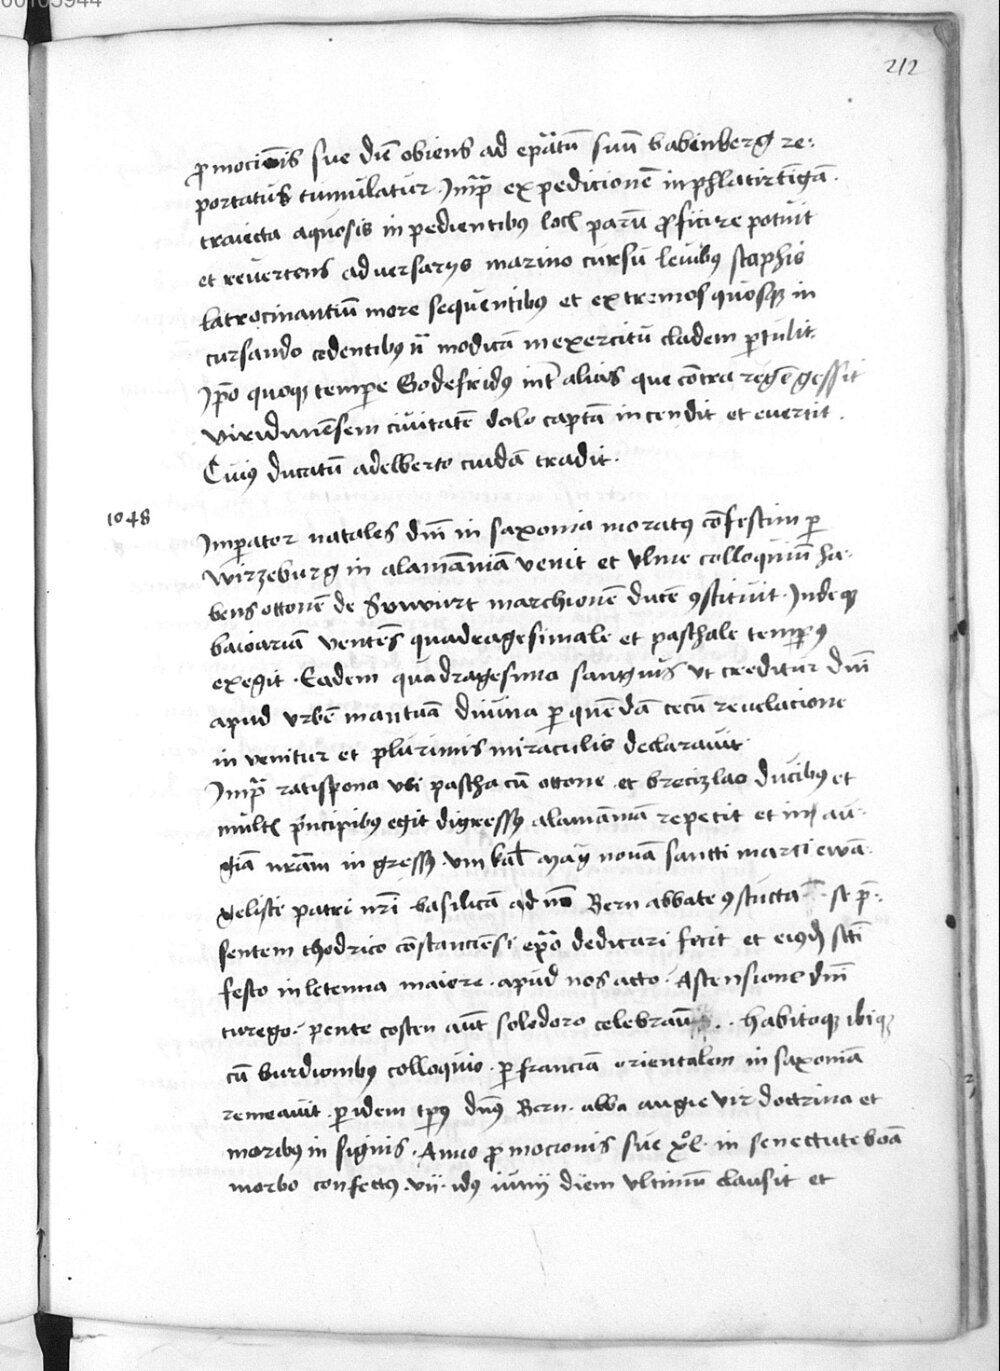 00105944
212
ꝓmocionis sue die obiens ad epatu suu babenberg re-
portatus tumulatur. Impr expedicione in phlatirtinga.
traiecta aquosis inpedientibus locis paru proficere potuit
et revertens adversarys marino cursu levibus scaphis
latrocinantiu more sequentibus et extremos quosqz in
cursando cedentibus no modica in exercitu cladem ptulit.
Ipo quoqz tempore Godefridus int alias que contra rege gessit
viridunensem civitate dolo capta incendit et evertit.
Cuius ducatu adelberto cuidam tradit.
1048
Imperator natales dni in saxonia moratus confestim p
wirzeburg in alamannia venit et ulme colloquiu ha-
bens ottone de marchione duce 9stituit. Indeqz
baioaria quadragesimale et paschale tempus
exegit. Eadem quadragesima sanguis ut creditur dni
apud urbe mantua divina p quenda cecu revelacione
invenitur et plurimis miraculis declaravit.
Impr ratispona ubi pascha cu ottone et brecizlao ducibus et
mult principibus egit digressus alamannia repetit et in au-
gia nram ingressus viii kal may novam sancti marci ewa-
geliste patri nri basilica ad Bern abbate 9structa se p-
sentem thodrico constanciensi epo dedicari fecit et eiusd sci
festo in letenia maiore apud nos acto. Astensione dni
turego. pente costen aut solodoro celebravit. habitoqz ibiqz
cu burdionibus colloquio. p francia orientalem in saxonia
remeavit. p idem tps dns Bern. abba augie vir doctrina et
moribus insignis. Anno promocionis sue xl. in senectute bona
morbo confectus. vii. idus iuny diem ultimum clausit et